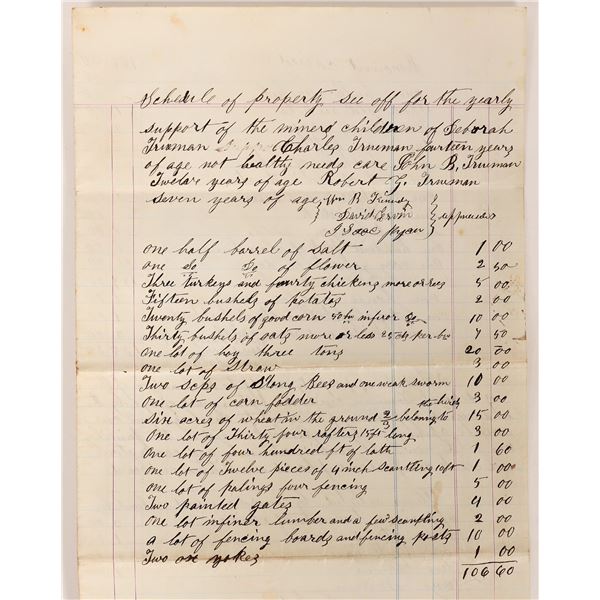 Schedule of property see off for the yearly
support of the miners children of Deborah
Trueman Charles Trueman fourteen years
of age not healthy needs care John B. Trueman
Twelve years of age Robert G. Trueman
seven years of age Wm B Kenedy
David Ervin appraisers
Isaac
one half barrel of Salt 1 00
one Do Do of flower 2 50
Three turkeys and fourty chickens more or less 5 00
Fifteen bushels of potatos 2 00
Twenty bushels of good corn 50 to inferor Do 10 00
Thirty bushels of oats more or less 25 cts per bu 7 50
one lot of hay three tons 20 00
one lot of Straw 3 00
Two of Strong Bees and one weak sworm 10 00
one lot of corn fodder 3 00
Six acres of wheat in the ground 2/3 beloning to the heirs 15 00
One lot of Thirty four rafters 15 ft long 3 00
One lot of four hundred ft of lath 1 60
one lot of Twelve pieces of 4 inch scantling 10 ft 1 00
one lot of palings four fencing 5 00
Two painted gates 4 00
One lot infiner lumber and a few scantling 2 00
a lot of fencing boards and fencing posts 10 00
Two ox yokes 1 00
106 60